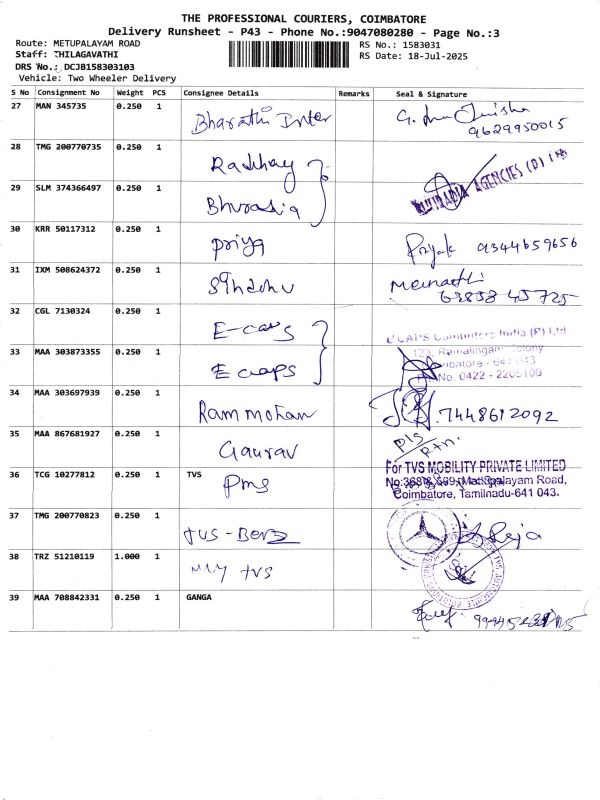 THE PROFESSIONAL COURIERS, COIMBATORE
Delivery Runsheet - P43 - Phone No.:9047080280 - Page No.:3
Route: METUPALAYAM ROAD RS No.: 1583031
Staff: THILAGAVATHI RS Date: 18-Jul-2025
DRS No.: DCJB158303103
Vehicle: Two Wheeler Delivery
S No Consignment No Weight PCS Consignee Details Remarks Seal & Signature
27 MAN 345735 0.250 1 Bharathi Inter
9629950015
28 TMG 200770735 0.250 1 Radhay
AGENCIES (P) Ltd
29 SLM 374366497 0.250 1
30 KRR 50117312 0.250 1 Priya 9344659656
31 IXM 508624372 0.250 1 Sindhu Meinathi
63858 45725
32 CGL 7130324 0.250 1 E-caps E'CAPS Computers India (P) Ltd
123, Ramalingam Colony
33 MAA 303873355 0.250 1 E caaps Coimbatore - 641 043
No. 0422 - 2205100
34 MAA 303697939 0.250 1 Ram mohan 7448612092
35 MAA 867681927 0.250 1 Gaurav Pls
Rtn.
36 TCG 10277812 0.250 1 TVS Pms For TVS MOBILITY PRIVATE LIMITED
Mettupalayam Road,
Coimbatore, Tamilnadu-641 043.
37 TMG 200770823 0.250 1 TVS-Benz
38 TRZ 51210119 1.000 1 my tvs
39 MAA 708842331 0.250 1 GANGA